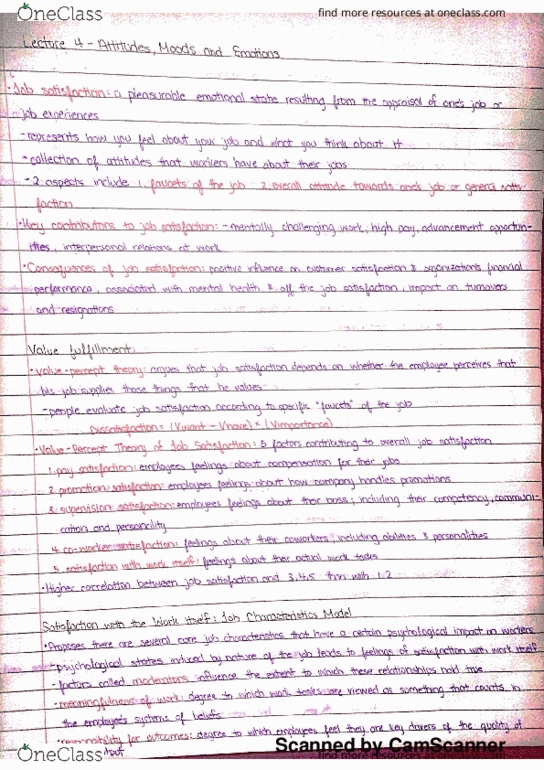 OneClass
find more resources at oneclass.com
Lecture 4 - Attitudes, Moods and Emotions
• Job satisfaction: a pleasurable emotional state resulting from the appraisal of one's job or
job experiences
- represents how you feel about your job and what you think about it
- collection of attitudes that workers have about their jobs
- 2 aspects include 1. faucets of the job 2. overall attitude towards one's job or general satis-
faction
• Key contributors to job satisfaction: - mentally challenging work, high pay, advancement opportun-
ities, interpersonal relations at work
• Consequences of job satisfaction: positive influence on customer satisfaction & organizations financial
performance, associated with mental health & off the job satisfaction, impact on turnovers
and resignations
Value fulfillment
• Value-percept theory: argues that job satisfaction depends on whether the employee perceives that
his job supplies those things that he values
- people evaluate job satisfaction according to specific "faucets" of the job
Dissatisfaction = (Vwant - Vhave) × (Vimportance)
• Value-Percept Theory of Job Satisfaction: 5 factors contributing to overall job satisfaction
1. pay satisfaction: employees feelings about compensation for their jobs
2. promotion satisfaction: employees feelings about how company handles promotions
3. supervision satisfaction: employees feelings about their boss; including their competency, communi-
cation and personality
4. co-worker satisfaction: feelings about their coworkers including abilities & personalities
5. satisfaction with work itself: feelings about their actual work tasks
• Higher correlation between job satisfaction and 3,4,5 than with 1,2
Satisfaction with the Work Itself: Job Characteristics Model
• Proposes there are several core job characteristics that have a certain psychological impact on workers
- psychological states induced by nature of the job leads to feelings of satisfaction with work itself
- factors called moderators influence the extent to which these relationships hold true
- meaningfulness of work: degree to which work tasks are viewed as something that counts in
the employee's systems of beliefs
- responsibility for outcomes: degree to which employees feel they are key drivers of the quality of
OneClass
Scanned by CamScanner
find more resources at oneclass.com